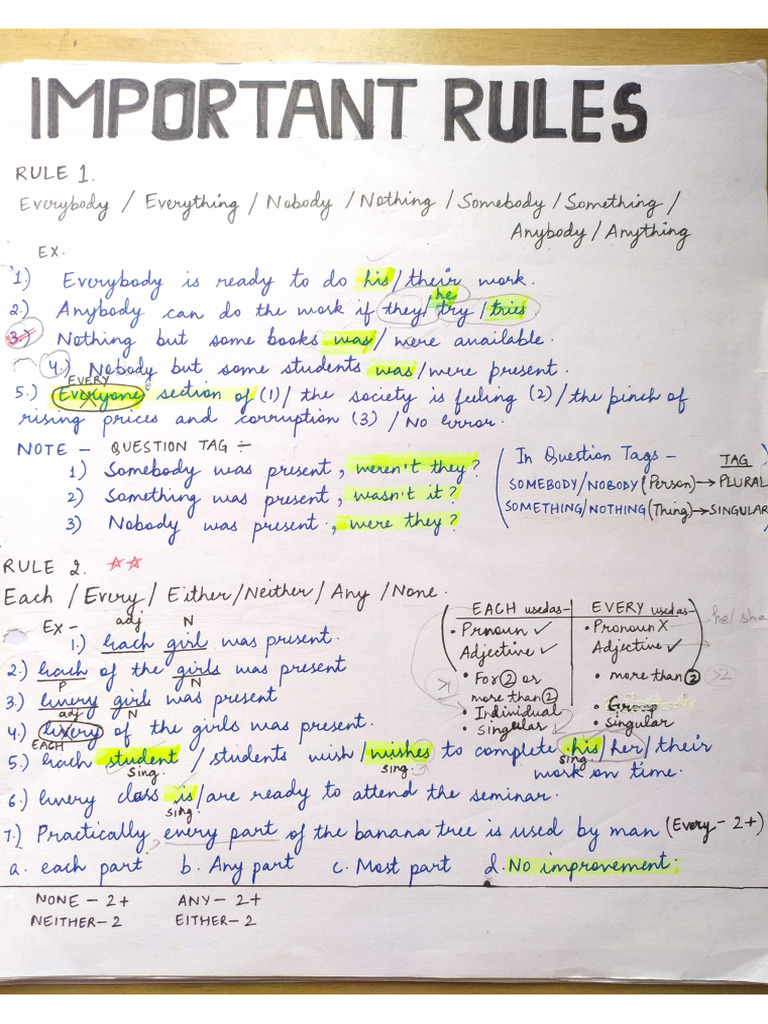 IMPORTANT RULES
RULE 1.
Everybody / Everything / Nobody / Nothing / Somebody / Something /
Anybody / Anything
EX.
1.) Everybody is ready to do his / their work.
he
2.) Anybody can do the work if they / try / tries
3.) Nothing but some books was / were available.
4.) Nobody but some students was / were present.
EVERY
5.) Everyone section of (1) / the society is feeling (2) / the pinch of
rising prices and corruption (3) / No error.
NOTE - QUESTION TAG ÷
1) Somebody was present, weren't they?
2) Something was present, wasn't it?
3) Nobody was present, were they?
In Question Tags - TAG
SOMEBODY/NOBODY (Person) → PLURAL
SOMETHING/NOTHING (Thing) → SINGULAR
RULE 2. ☆☆
Each / Every / Either / Neither / Any / None.
Ex - adj N
1.) Each girl was present.
2.) Each of the girls was present
P N
3.) Every girl was present
adj N
4.) Every of the girls was present.
EACH
EACH used as - EVERY used as -
• Pronoun ✓ • Pronoun X he/she
Adjective ✓ Adjective ✓
• For 2 or • more than 2 >2
more than 2 >1
• Individual • Group
• Singular • Singular
5.) Each student / students wish / wishes to complete his / her / their
sing. sing. sing. work on time.
6.) Every class is / are ready to attend the seminar.
sing.
7.) Practically every part of the banana tree is used by man (Every - 2+)
a. each part b. Any part c. Most part d. No improvement.
NONE - 2+ ANY - 2+
NEITHER - 2 EITHER - 2